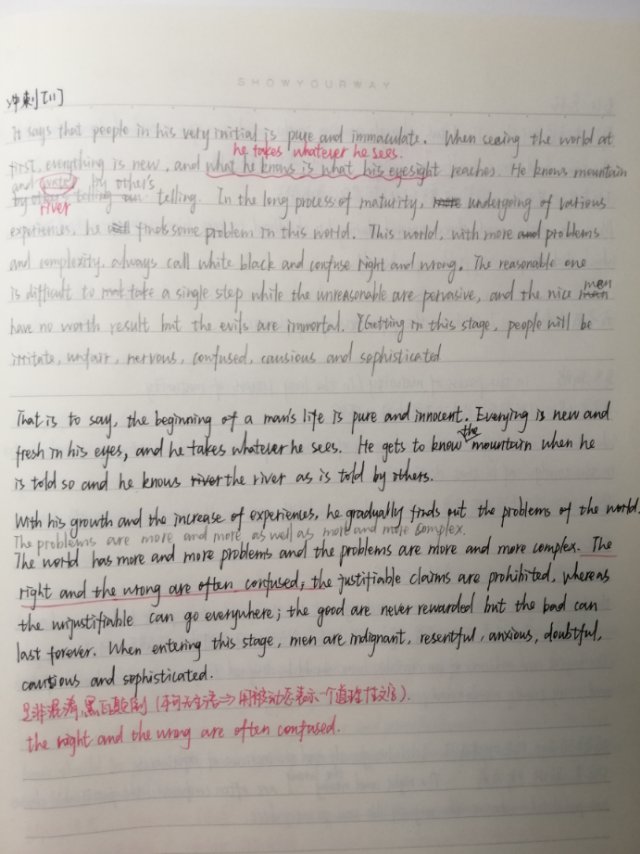 SHOWYOURWAY
冲刺[11]
It says that people in his very initial is pure and immaculate. When seeing the world at
he takes whatever he sees.
first, everything is new, and what he knows is what his eyesight reaches. He knows mountain
and by other's
by other telling telling. In the long process of maturity, undergoing of various
river
experiences, he finds some problem in this world. This world, with more and problems
and complexity, always call white black and confuse right and wrong. The reasonable one
is difficult to take a single step while the unreasonable are pervasive, and the nice men
have no worth result but the evils are immortal. Getting in this stage, people will be
irritate, unfair, nervous, confused, causious and sophisticated
That is to say, the beginning of a man's life is pure and innocent. Everying is new and
fresh in his eyes, and he takes whatever he sees. He gets to know the mountain when he
is told so and he knows river the river as is told by others.
With his growth and the increase of experiences, he gradually finds out the problems of the world.
The problems are more and more as well as more and more complex.
The world has more and more problems and the problems are more and more complex. The
right and the wrong are often confused; the justifiable claims are prohibited, whereas
the unjustifiable can go everywhere; the good are never rewarded but the bad can
last forever. When entering this stage, men are indignant, resentful, anxious, doubtful,
cautious and sophisticated.
是非混淆,黑白颠倒 (不可无主语⇒用被动态表示一个
the right and the wrong are often confused.